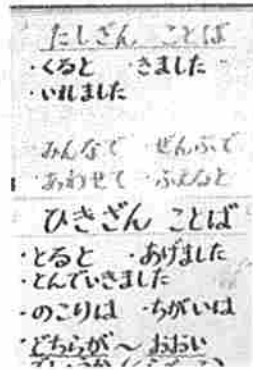 たしざん ことば
・くると ・きました
・いれました
・みんなで ・ぜんぶで
・あわせて ・ふえると
ひきざん ことば
・とると ・あげました
・とんでいきました
・のこりは ・ちがいは
・どちらが〜おおい